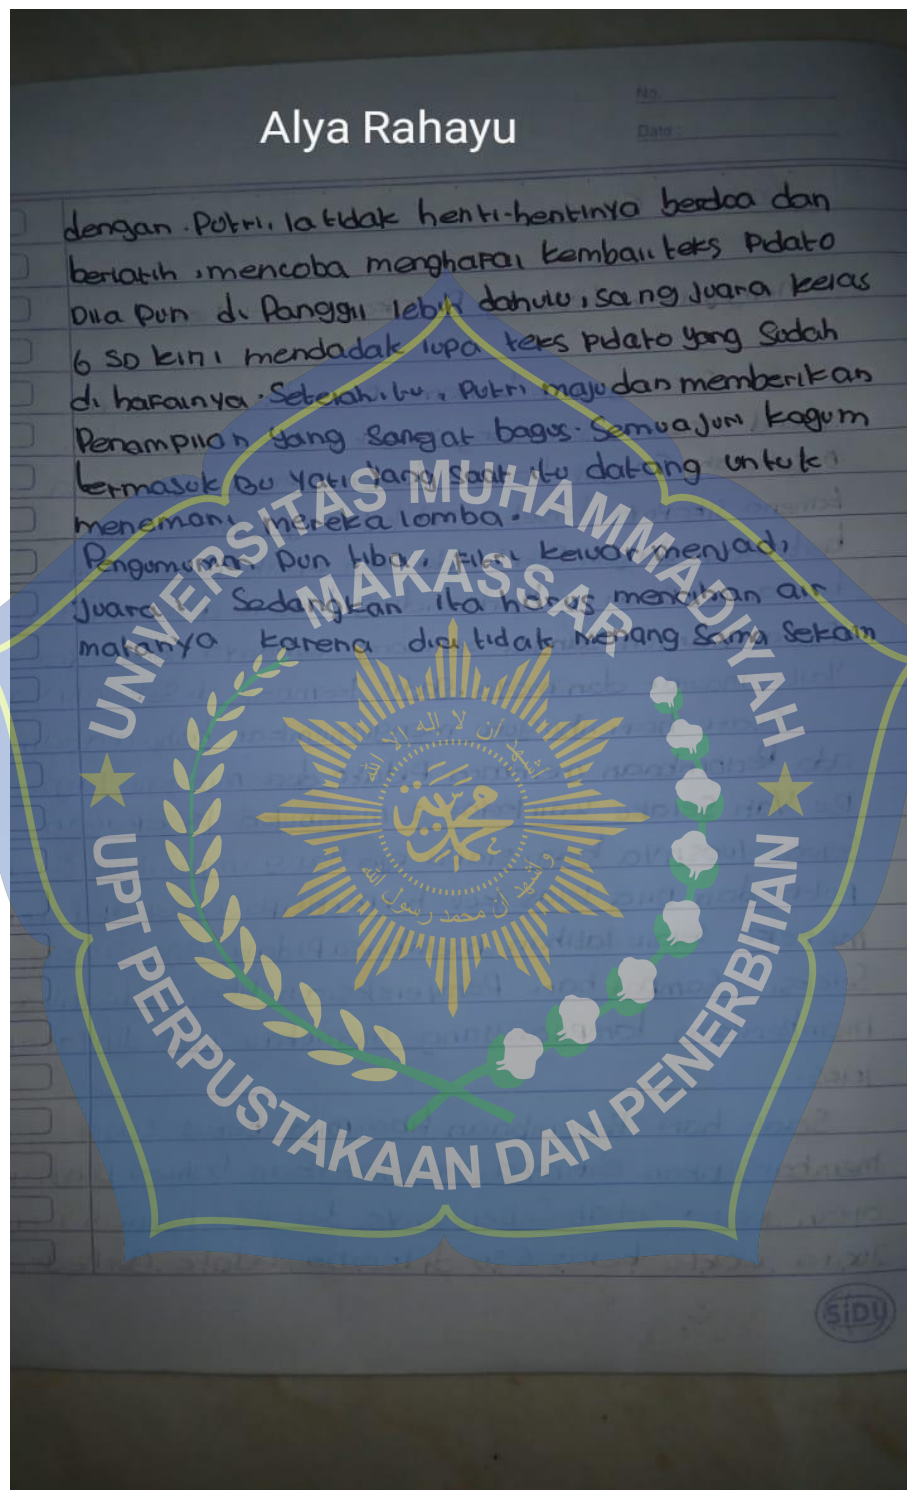 Alya Rahayu
No.
Date :
dengan . Putri. Ia tidak henti-hentinya berdoa dan
berlatih , mencoba menghafal kembali teks Pidato
Dila pun di Panggil lebih dahulu , sang Juara kelas
6 SD kini mendadak lupa teks pidato yang Sudah
di hafalnya . Setelah itu , Putri maju dan memberikan
Penampilan yang Sangat bagus . Semua Juri kagum
termasuk Bu Yati yang saat itu datang untuk
menemani mereka lomba .
Pengumuman Pun tiba , keluar menjadi
Juara Sedangkan harus air
matanya karena dia tidak menang Sama Sekali
UNIVERSITAS MUHAMMADIYAH
MAKASSAR
اشهد أن لا إله إلا الله
محمدية
واشهد ان محمد رسول الله
UPT PERPUSTAKAAN DAN PENERBITAN
SiDU